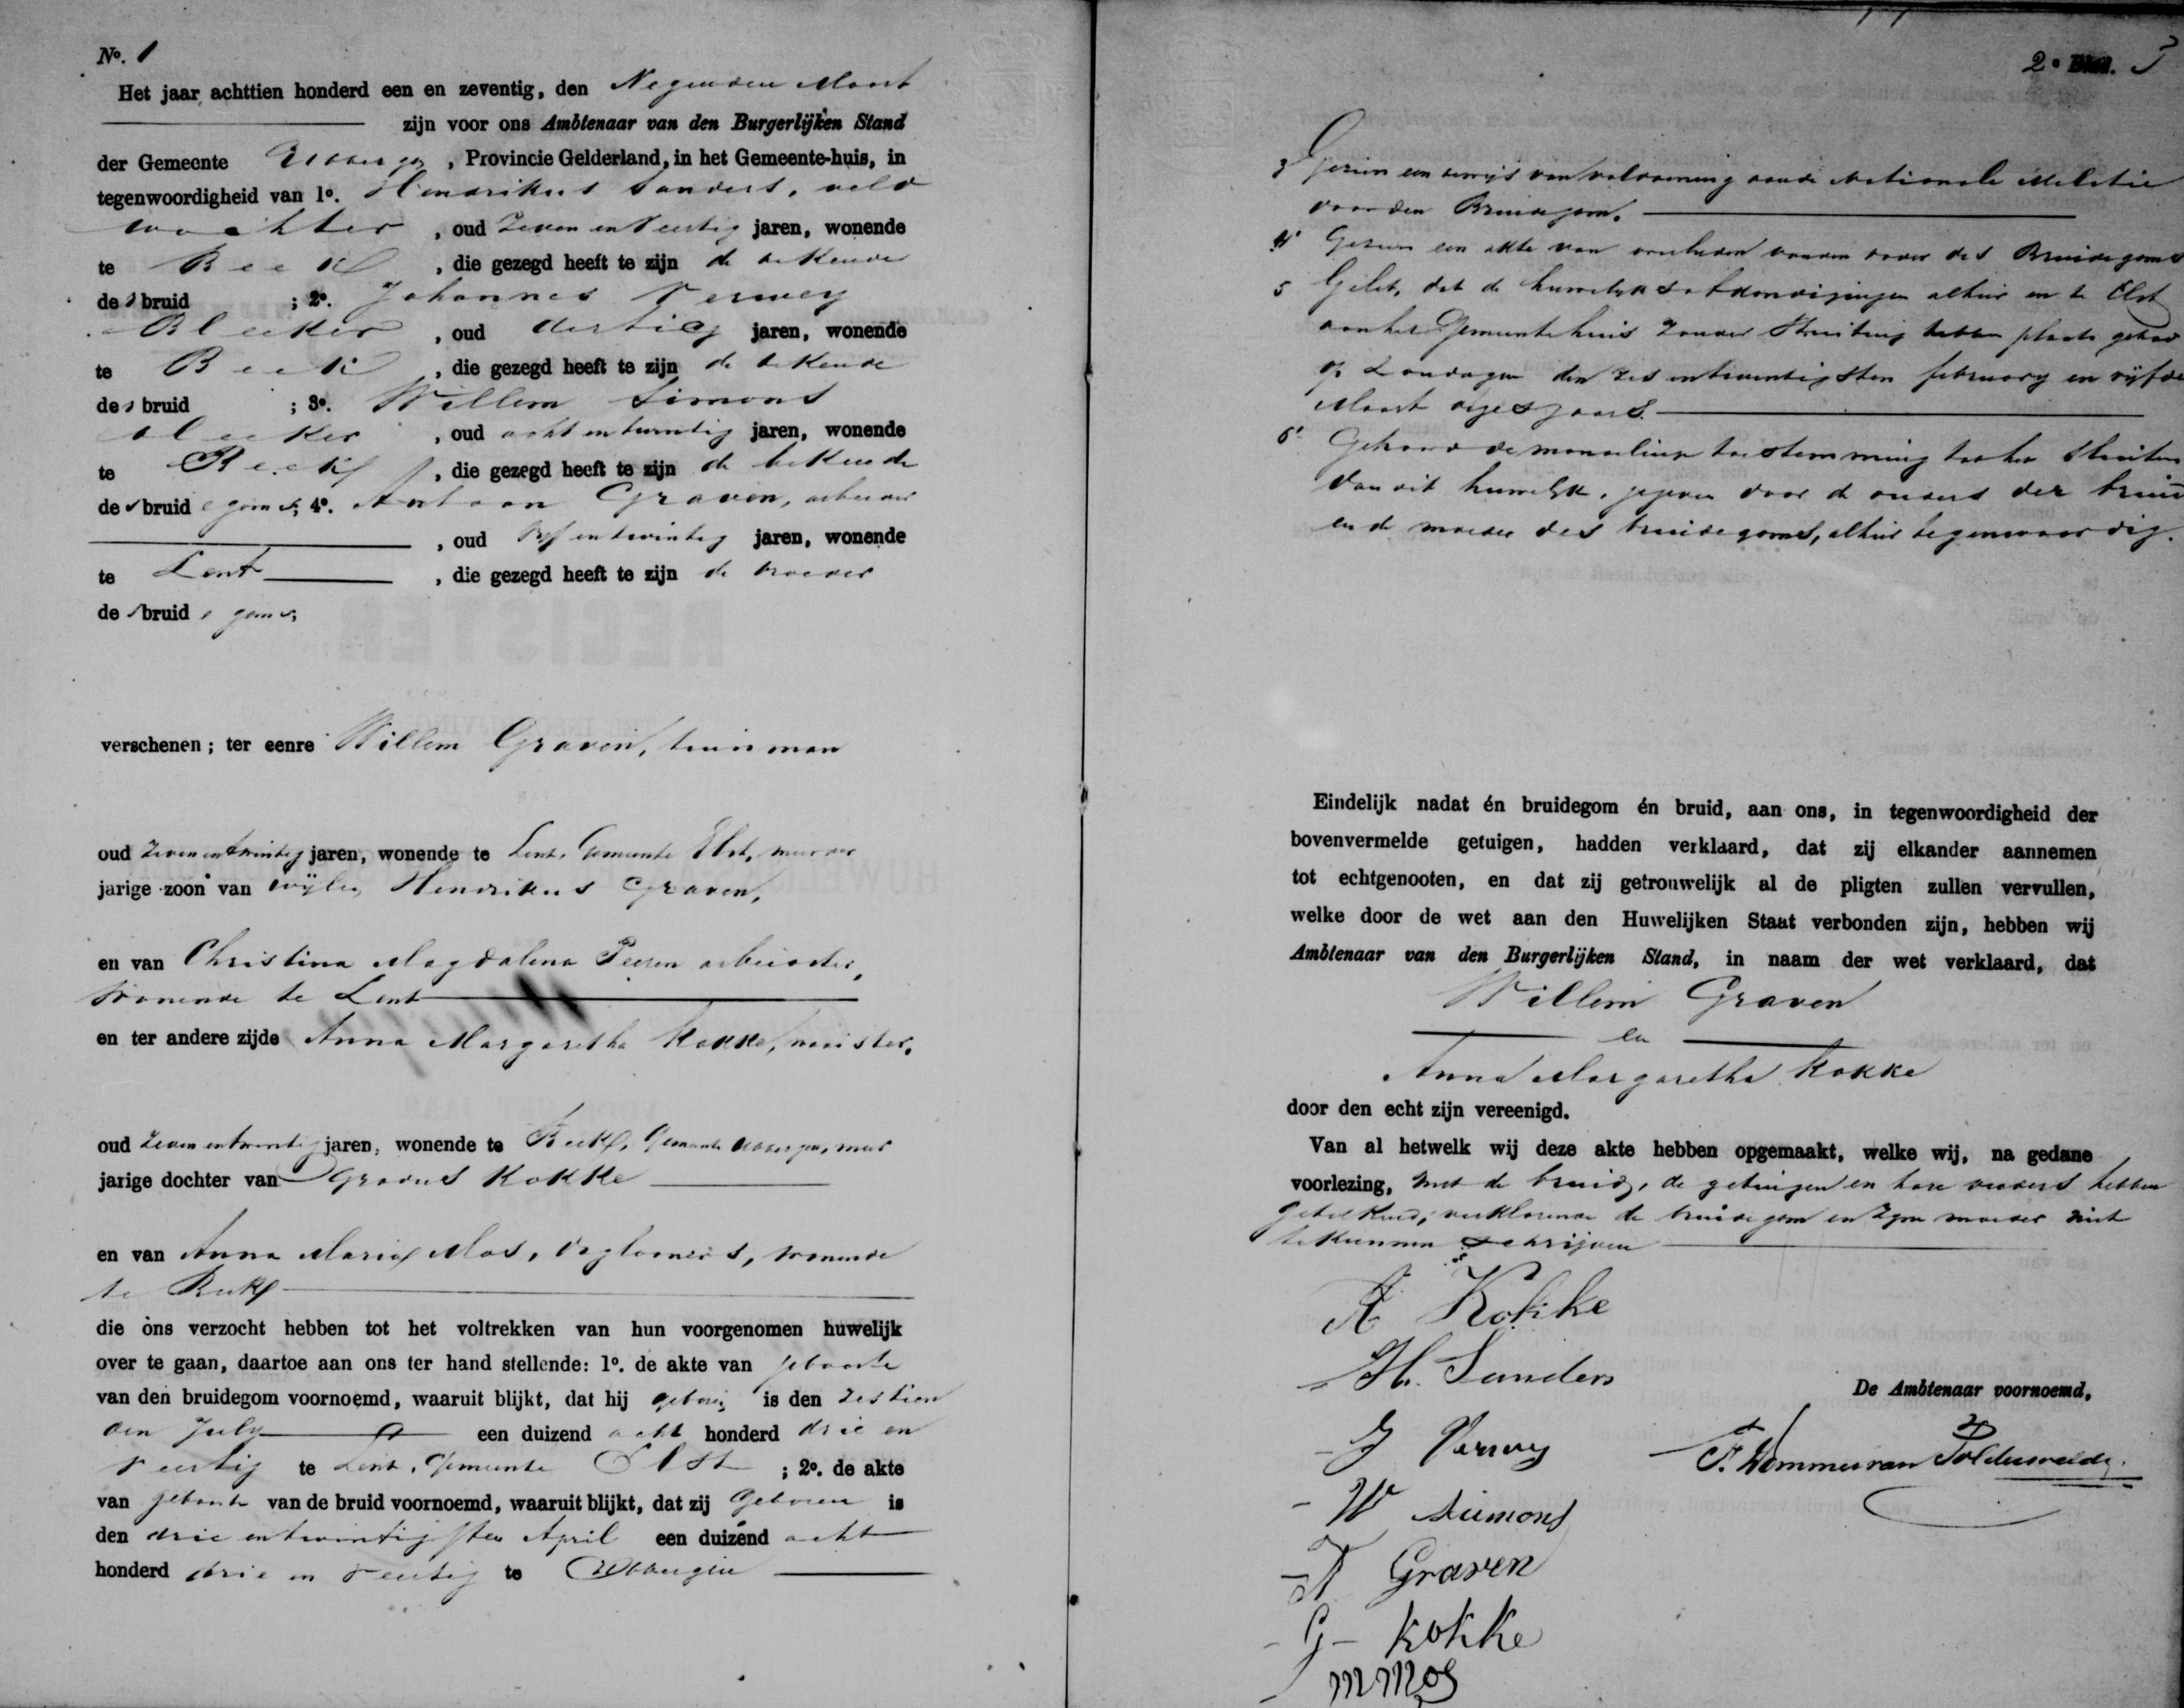 No. 1
Het jaar achttien honderd een en zeventig, den Negenden Maart
zijn voor ons Ambtenaar van den Burgerlijken Stand
der Gemeente Ubbergen, Provincie Gelderland, in het Gemeente-huis, in
tegenwoordigheid van 1o. Hendrikus Sanders, veld
wachter, oud Zeven en veertig jaren, wonende
te Beek, die gezegd heeft te zijn de bekende
des bruid ; 2o. Johannes Verwey
Bleeker, oud dertig jaren, wonende
te Beek, die gezegd heeft te zijn de bekende
des bruid ; 3o. Willem Simons
bleeker, oud acht en twintig jaren, wonende
te Beek, die gezegd heeft te zijn de bekende
des bruidegoms; 4o. Antoon Graven, arbeider
, oud vijf en twintig jaren, wonende
te Lent, die gezegd heeft te zijn de broeder
des bruidegoms;
verschenen; ter eenre Willem Graven, tuinman
oud Zeven en twintig jaren, wonende te Lent, Gemeente Elst, meerder
jarige zoon van wijlen Hendrikus Graven,
en van Christina Magdalena Peeren arbeidster,
wonende te Lent
en ter andere zijde Anna Margaretha Kokke, naaister,
oud Zeven en twintig jaren, wonende te Beek, Gemeente Ubbergen, meer
jarige dochter van Gradus Kokke
en van Anna Maria Mos, daglooners, wonende
te Beek
die ons verzocht hebben tot het voltrekken van hun voorgenomen huwelijk
over te gaan, daartoe aan ons ter hand stellende: 1o. de akte van geboorte
van den bruidegom voornoemd, waaruit blijkt, dat hij geboren is den zestien
den July een duizend acht honderd drie en
veertig te Lent, Gemeente Elst ; 2o. de akte
van geboorte van de bruid voornoemd, waaruit blijkt, dat zij Geboren is
den drie en twintigsten April een duizend acht
honderd drie en veertig te Ubbergen
2e Blad. 3
3 Gezien een bewijs van voldoening aan de Nationale Militie
voor den Bruidegom.
4o Gezien een akte van overlijden van den vader des Bruidegoms
5 Gelet, dat de huwelijksafkondigingen alhier en te Elst
aan het Gemeentehuis zonder Stuiting hebben plaats gehad
op Zondagen den zes en twintigsten february en vijfde
Maart dezes jaars.
6o Gehoord de mondelinge toestemming tot het sluiten
van dit huwelijk, gegeven door de ouders der bruid
en de moeder des bruidegoms, alhier tegenwoordig.
Eindelijk nadat én bruidegom én bruid, aan ons, in tegenwoordigheid der
bovenvermelde getuigen, hadden verklaard, dat zij elkander aannemen
tot echtgenooten, en dat zij getrouwelijk al de pligten zullen vervullen,
welke door de wet aan den Huwelijken Staat verbonden zijn, hebben wij
Ambtenaar van den Burgerlijken Stand, in naam der wet verklaard, dat
Willem Graven
en
Anna Margaretha Kokke
door den echt zijn vereenigd.
Van al hetwelk wij deze akte hebben opgemaakt, welke wij, na gedane
voorlezing, met de bruid, de getuigen en hare ouders hebben
geteekend; verklarende de bruidegom en zijn moeder niet
te kunnen schrijven
A Kokke
H. Sanders
De Ambtenaar voornoemd,
J Verwey
W Siemons
A Graven
G Kokke
M Mos